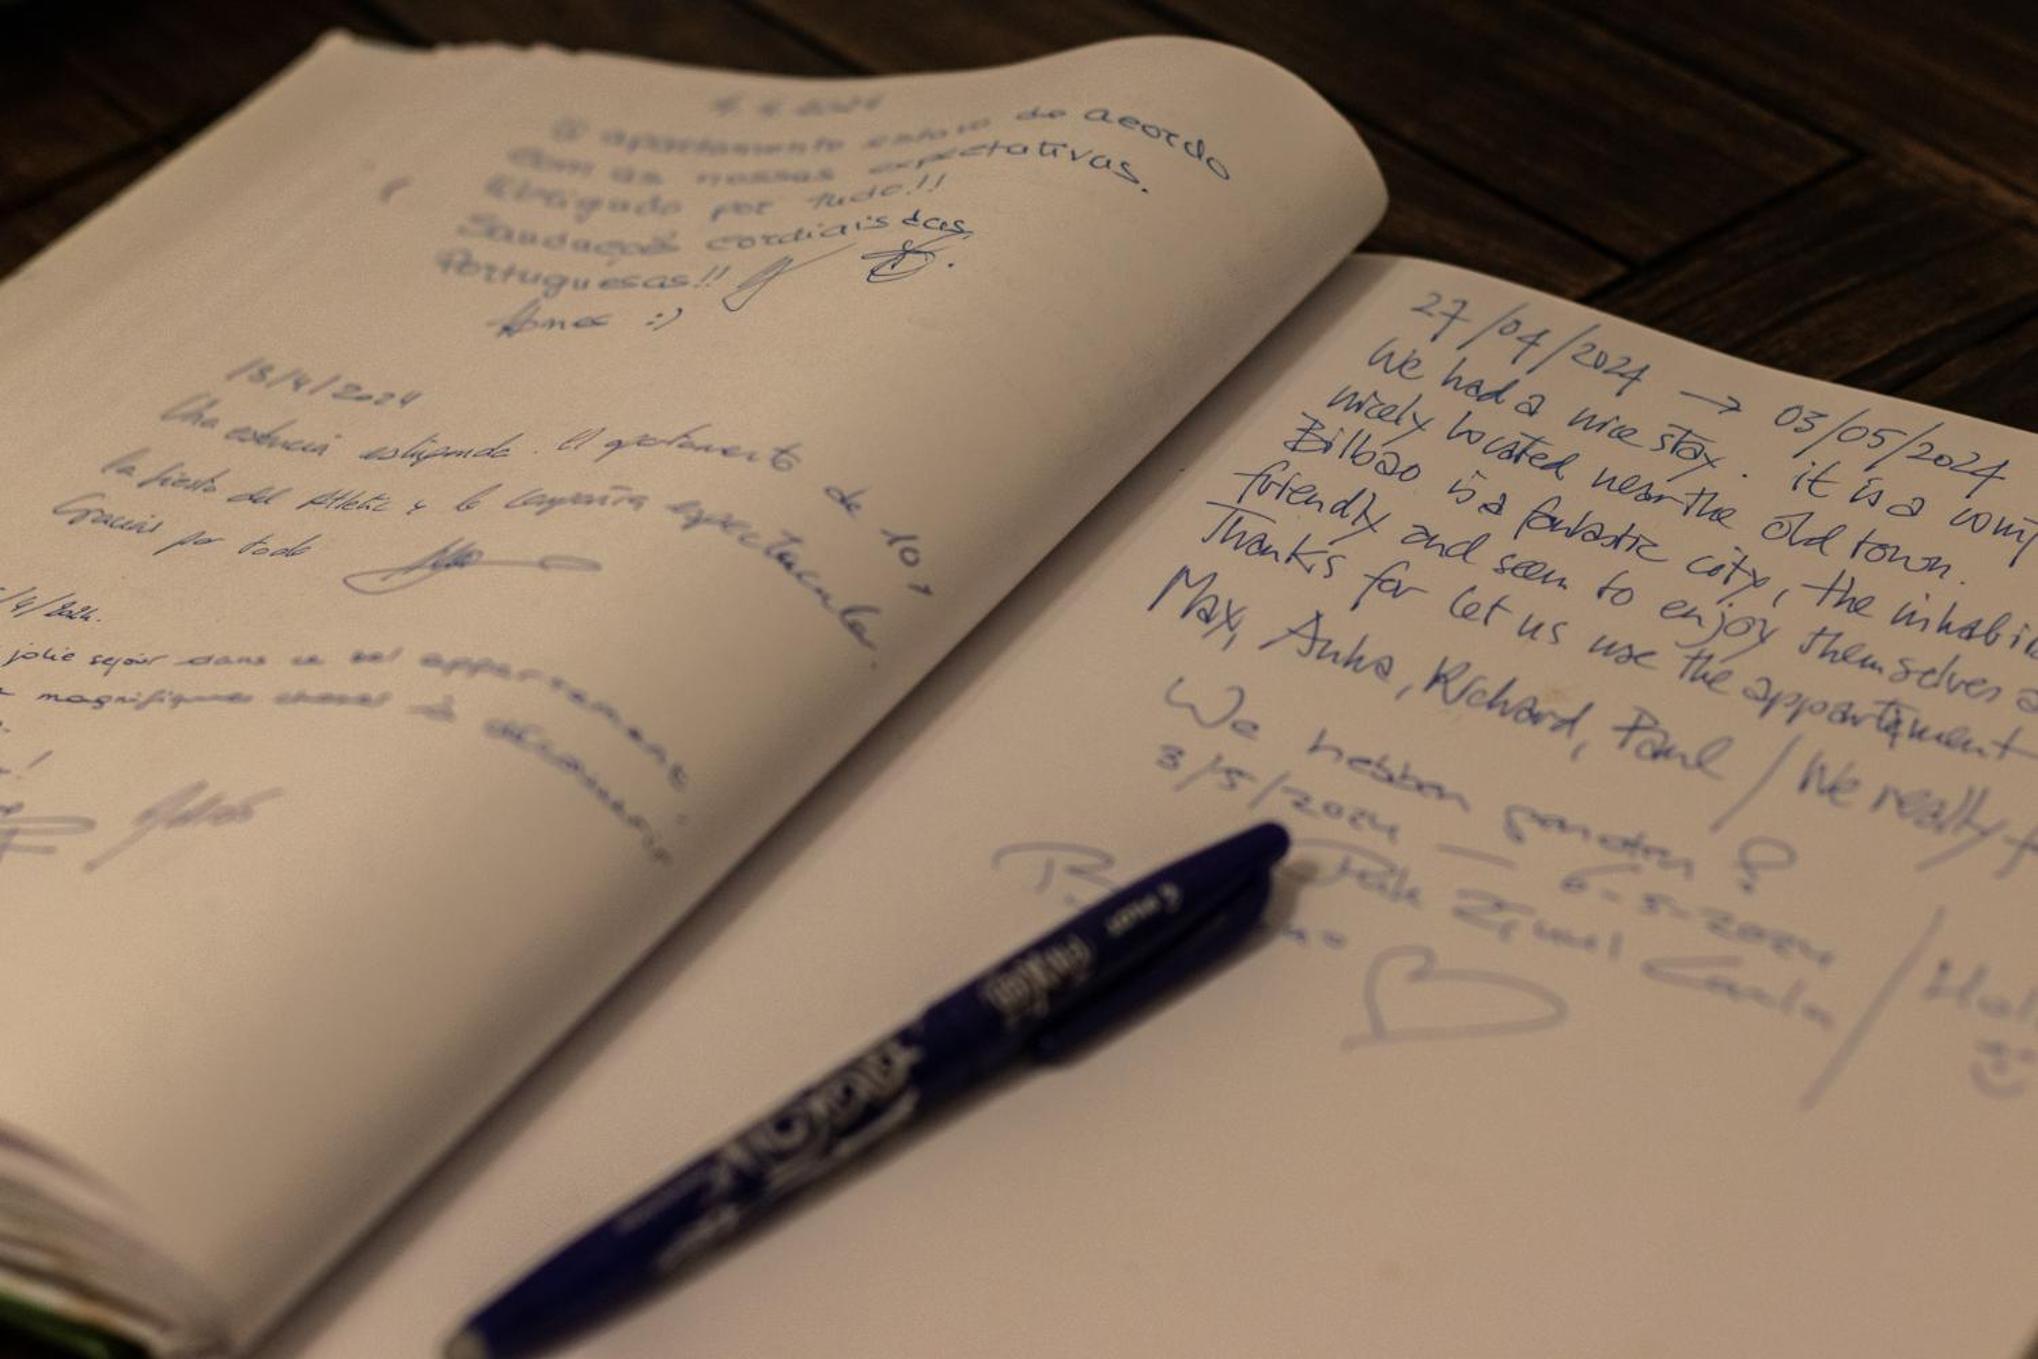 4.4.2024
O apartamento estava de acordo
com as nossas expectativas.
Obrigado por tudo!!
Saudações cordiais das
Portuguesas!!
:)
18/4/2024
Una estancia estupenda. El apartamento de 10,
la fiesta del Athletic y la compañía espectacular.
Gracias por todo
/4/2024.
jolie séjour dans ce bel appartement
magnifique à découvrir
!
27/04/2024 → 03/05/2024
We had a nice stay. it is a
nicely located near the old town.
Bilbao is a fantastic city, the
friendly and seem to enjoy themselves
Thanks for let us use the appartement
Max, Anha, Richard, Paul / We really
We hebben genoten
3/5/2024 — 6-5-2024
Carla
PILOT
FriXion